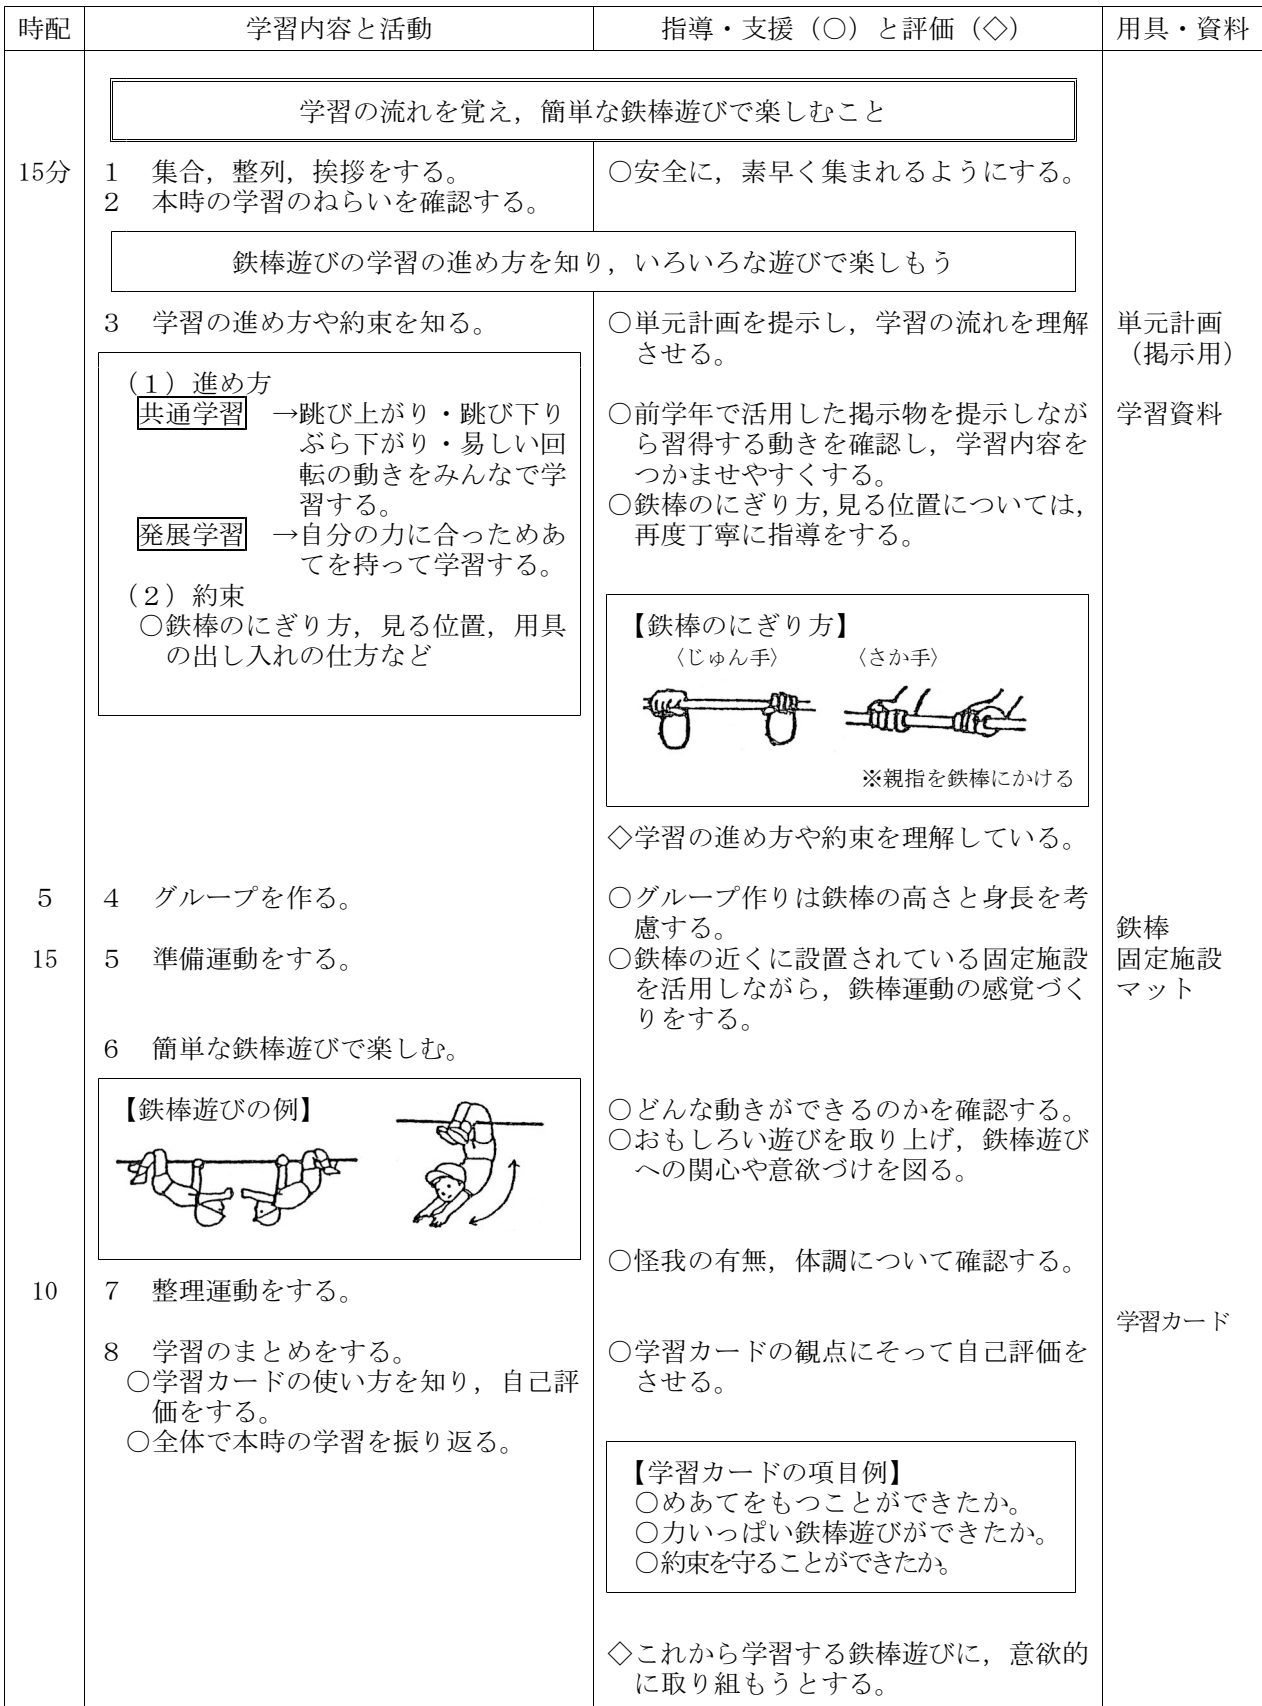 時配 学習内容と活動 指導・支援（○）と評価（◇） 用具・資料
学習の流れを覚え，簡単な鉄棒遊びで楽しむこと
15分 １　集合，整列，挨拶をする。 ○安全に，素早く集まれるようにする。
２　本時の学習のねらいを確認する。
鉄棒遊びの学習の進め方を知り，いろいろな遊びで楽しもう
３　学習の進め方や約束を知る。
（１）進め方
共通学習　→跳び上がり・跳び下り
ぶら下がり・易しい回
転の動きをみんなで学
習する。
発展学習　→自分の力に合っためあ
てを持って学習する。
（２）約束
○鉄棒のにぎり方，見る位置，用具
の出し入れの仕方など
○単元計画を提示し，学習の流れを理解
させる。
単元計画
（掲示用）
○前学年で活用した掲示物を提示しなが
ら習得する動きを確認し，学習内容を
つかませやすくする。
学習資料
○鉄棒のにぎり方，見る位置については，
再度丁寧に指導をする。
【鉄棒のにぎり方】
〈じゅん手〉　〈さか手〉
※親指を鉄棒にかける
◇学習の進め方や約束を理解している。
5 ４　グループを作る。
○グループ作りは鉄棒の高さと身長を考
慮する。
15 ５　準備運動をする。
○鉄棒の近くに設置されている固定施設
を活用しながら，鉄棒運動の感覚づく
りをする。
鉄棒
固定施設
マット
６　簡単な鉄棒遊びで楽しむ。
【鉄棒遊びの例】
○どんな動きができるのかを確認する。
○おもしろい遊びを取り上げ，鉄棒遊び
への関心や意欲づけを図る。
○怪我の有無，体調について確認する。
10 ７　整理運動をする。
学習カード
８　学習のまとめをする。
○学習カードの使い方を知り，自己評
価をする。
○全体で本時の学習を振り返る。
○学習カードの観点にそって自己評価を
させる。
【学習カードの項目例】
○めあてをもつことができたか。
○力いっぱい鉄棒遊びができたか。
○約束を守ることができたか。
◇これから学習する鉄棒遊びに，意欲的
に取り組もうとする。